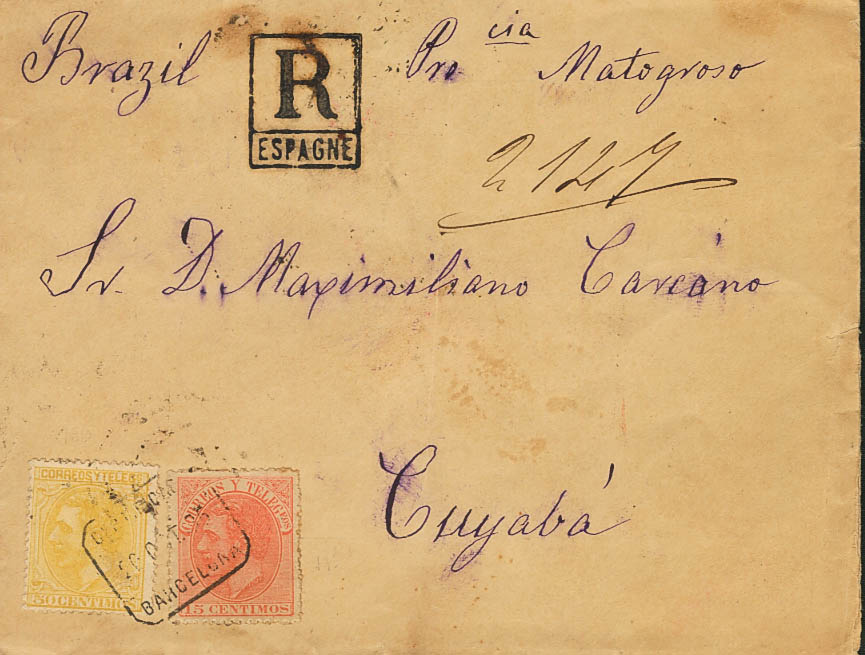 Brazil Pro cia Matogroso
R
ESPAGNE
2147
Sr. D. Maximiliano Carcano
Cuyabá
CORREOS Y TELEG
50 CENTIMO
CORREOS Y TELEGFOS
15 CENTIMOS
BARCELONA